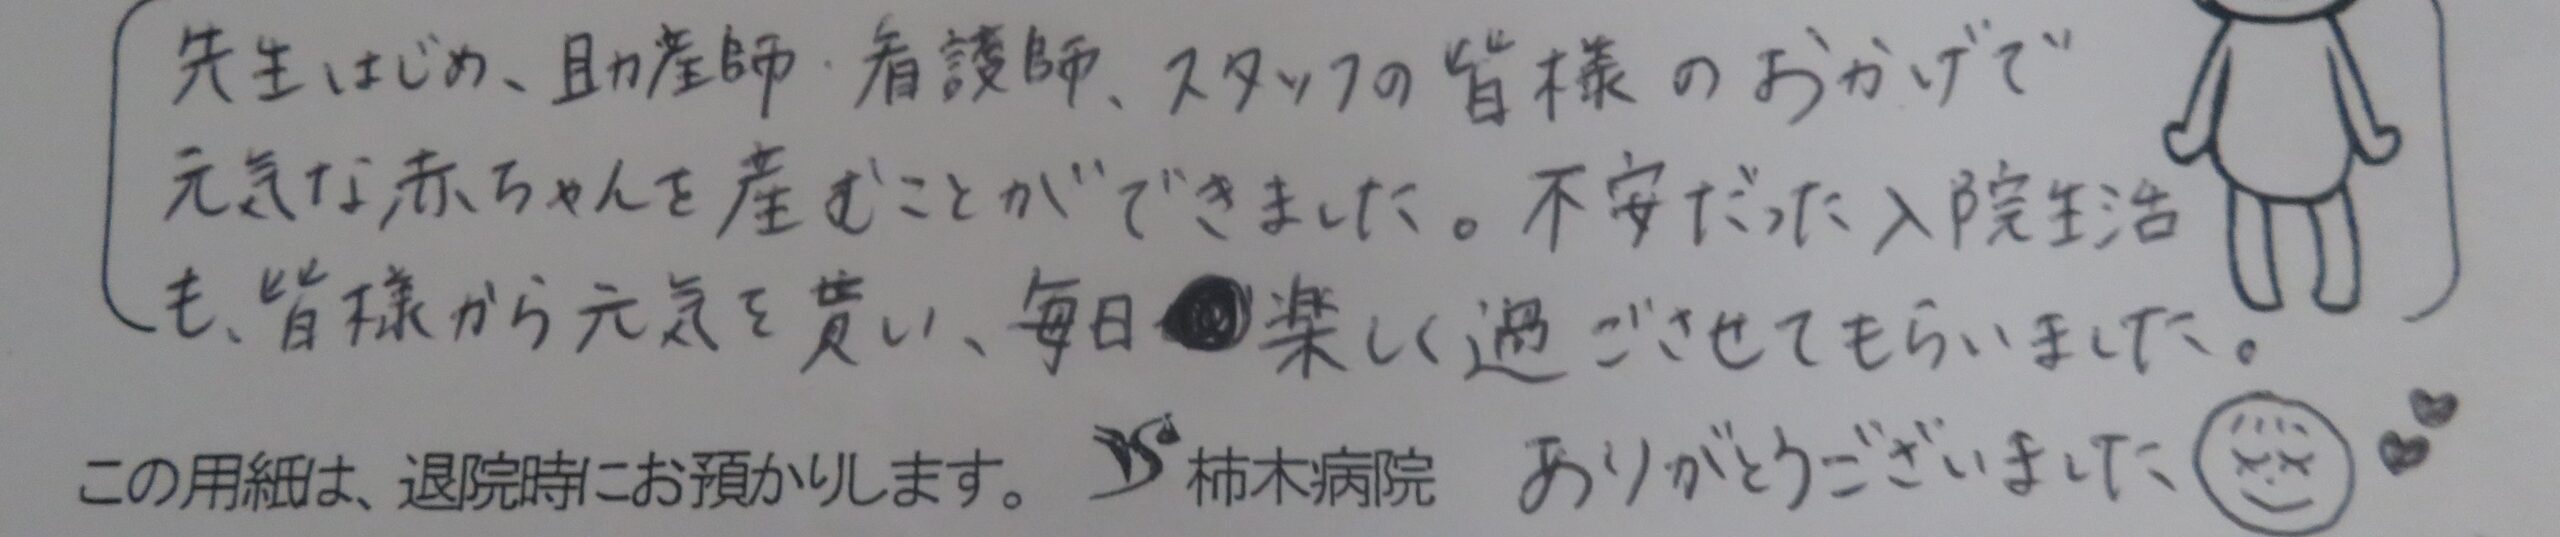 先生はじめ、助産師・看護師、スタッフの皆様のおかげで
元気な赤ちゃんを産むことができました。不安だった入院生活
も、皆様から元気を貰い、毎日楽しく過ごさせてもらいました。
この用紙は、退院時にお預かりします。 柿木病院 ありがとうございました